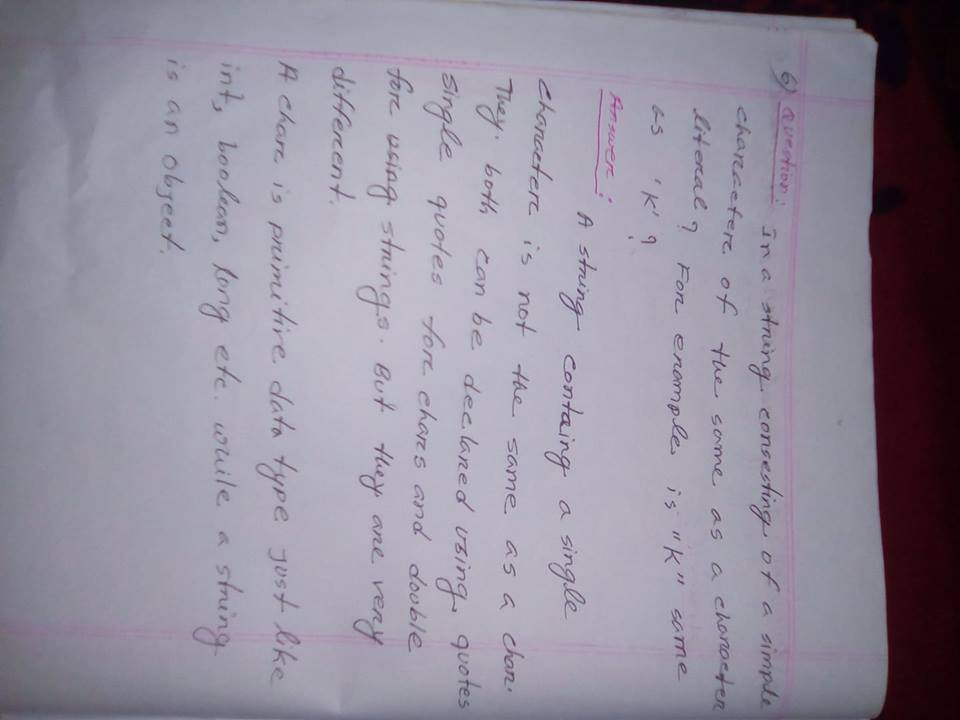 6) Question: In a string consesting of a simple
characterc of the same as a character
literal? For enample is "K" same
as 'K'?
Answer:
A string containg a single
characterc is not the same as a char.
They. both can be declared using quotes
single quotes forc chars and double
forc using strings. But they are very
different.
A charc is primitive data type just like
int, boolean, long etc. while a string
is an object.